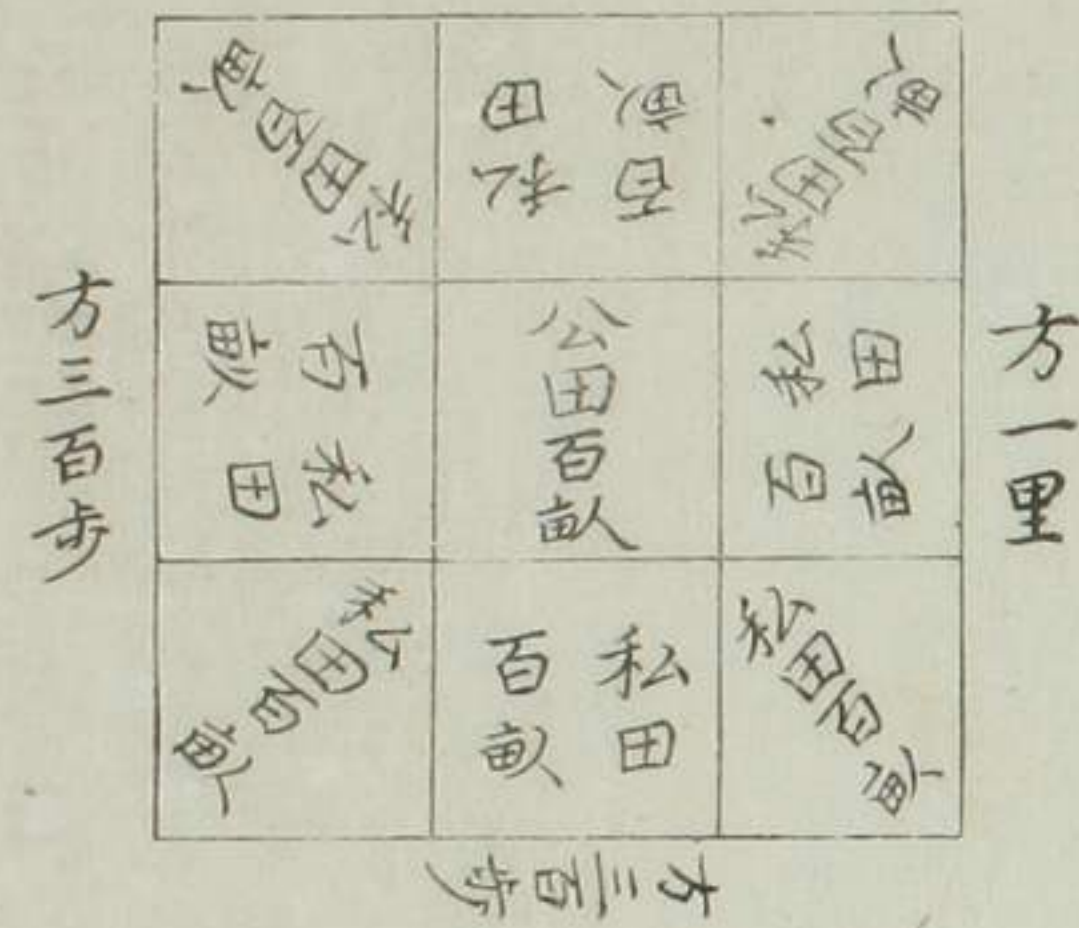 方一里
私田百畝
私田百畝
私田百畝
私田
百畝
公田百畝
私田
百畝
私田百畝
私田
百畝
私田百畝
方三百步
方三百步